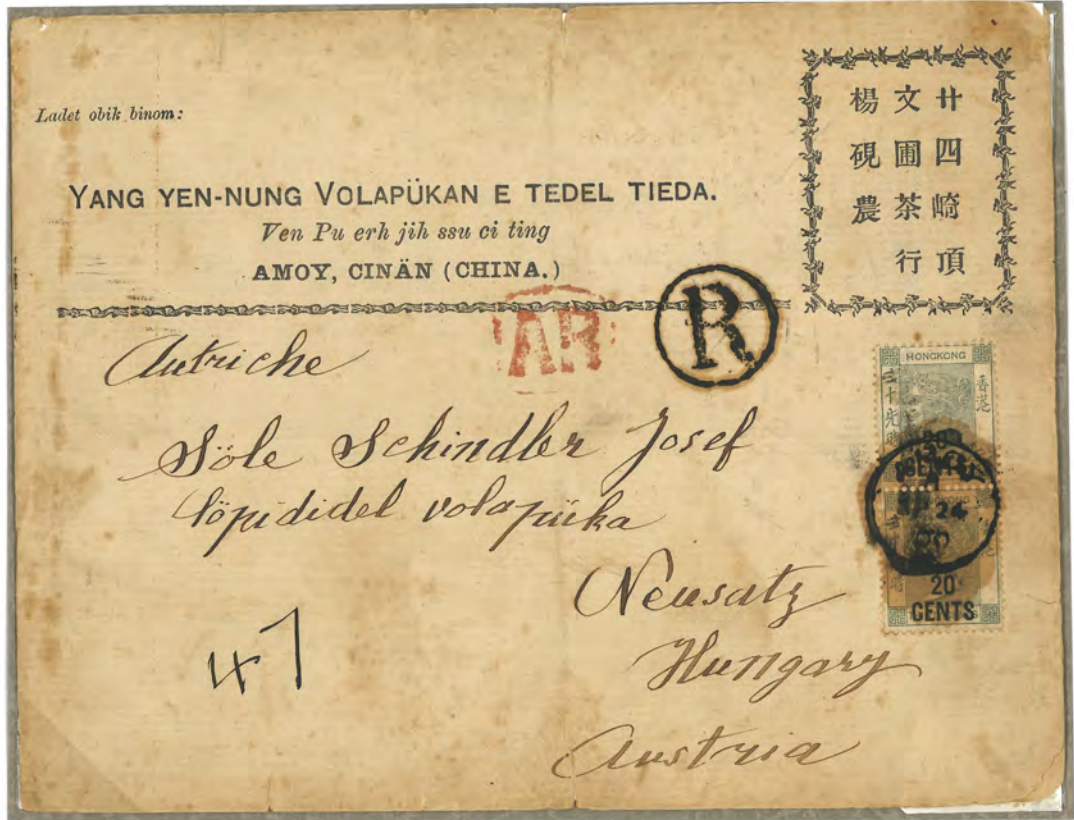 Ladet obik binom:
YANG YEN-NUNG VOLAPÜKAN E TEDEL TIEDA.
Ven Pu erh jih ssu ci ting
AMOY, CINÄN (CHINA.)
廿四崎頂
文圃茶行
楊硯農
AR
R
Autriche
Söle Schindler Josef
löpididel volapüka
Neusatz
Hungary
Austria
47
HONGKONG
香港
SP 24
20
CENTS